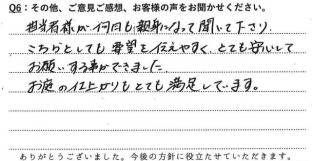 Q6：その他、ご意見ご感想、お客様の声をお聞かせください。
担当者様が何回も親身になって聞いて下さり、
こちらとしても要望を伝えやすく、とても安心して
お願いする事ができました。
お庭の仕上がりもとても満足しています。
ありがとうございました。今後の方針に役立たせていただきます。